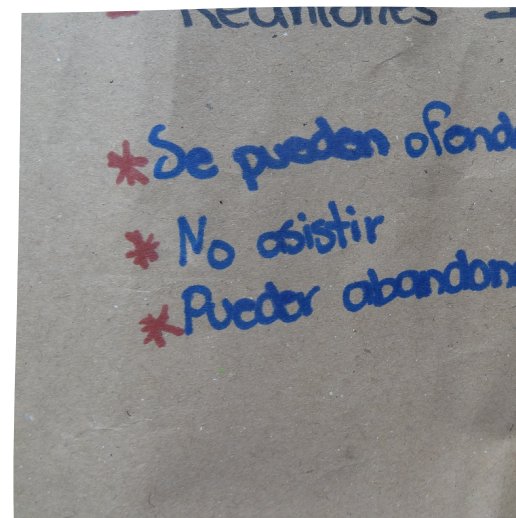 Reuniones
* Se pueden ofend
* No asistir
* Pueder abandon